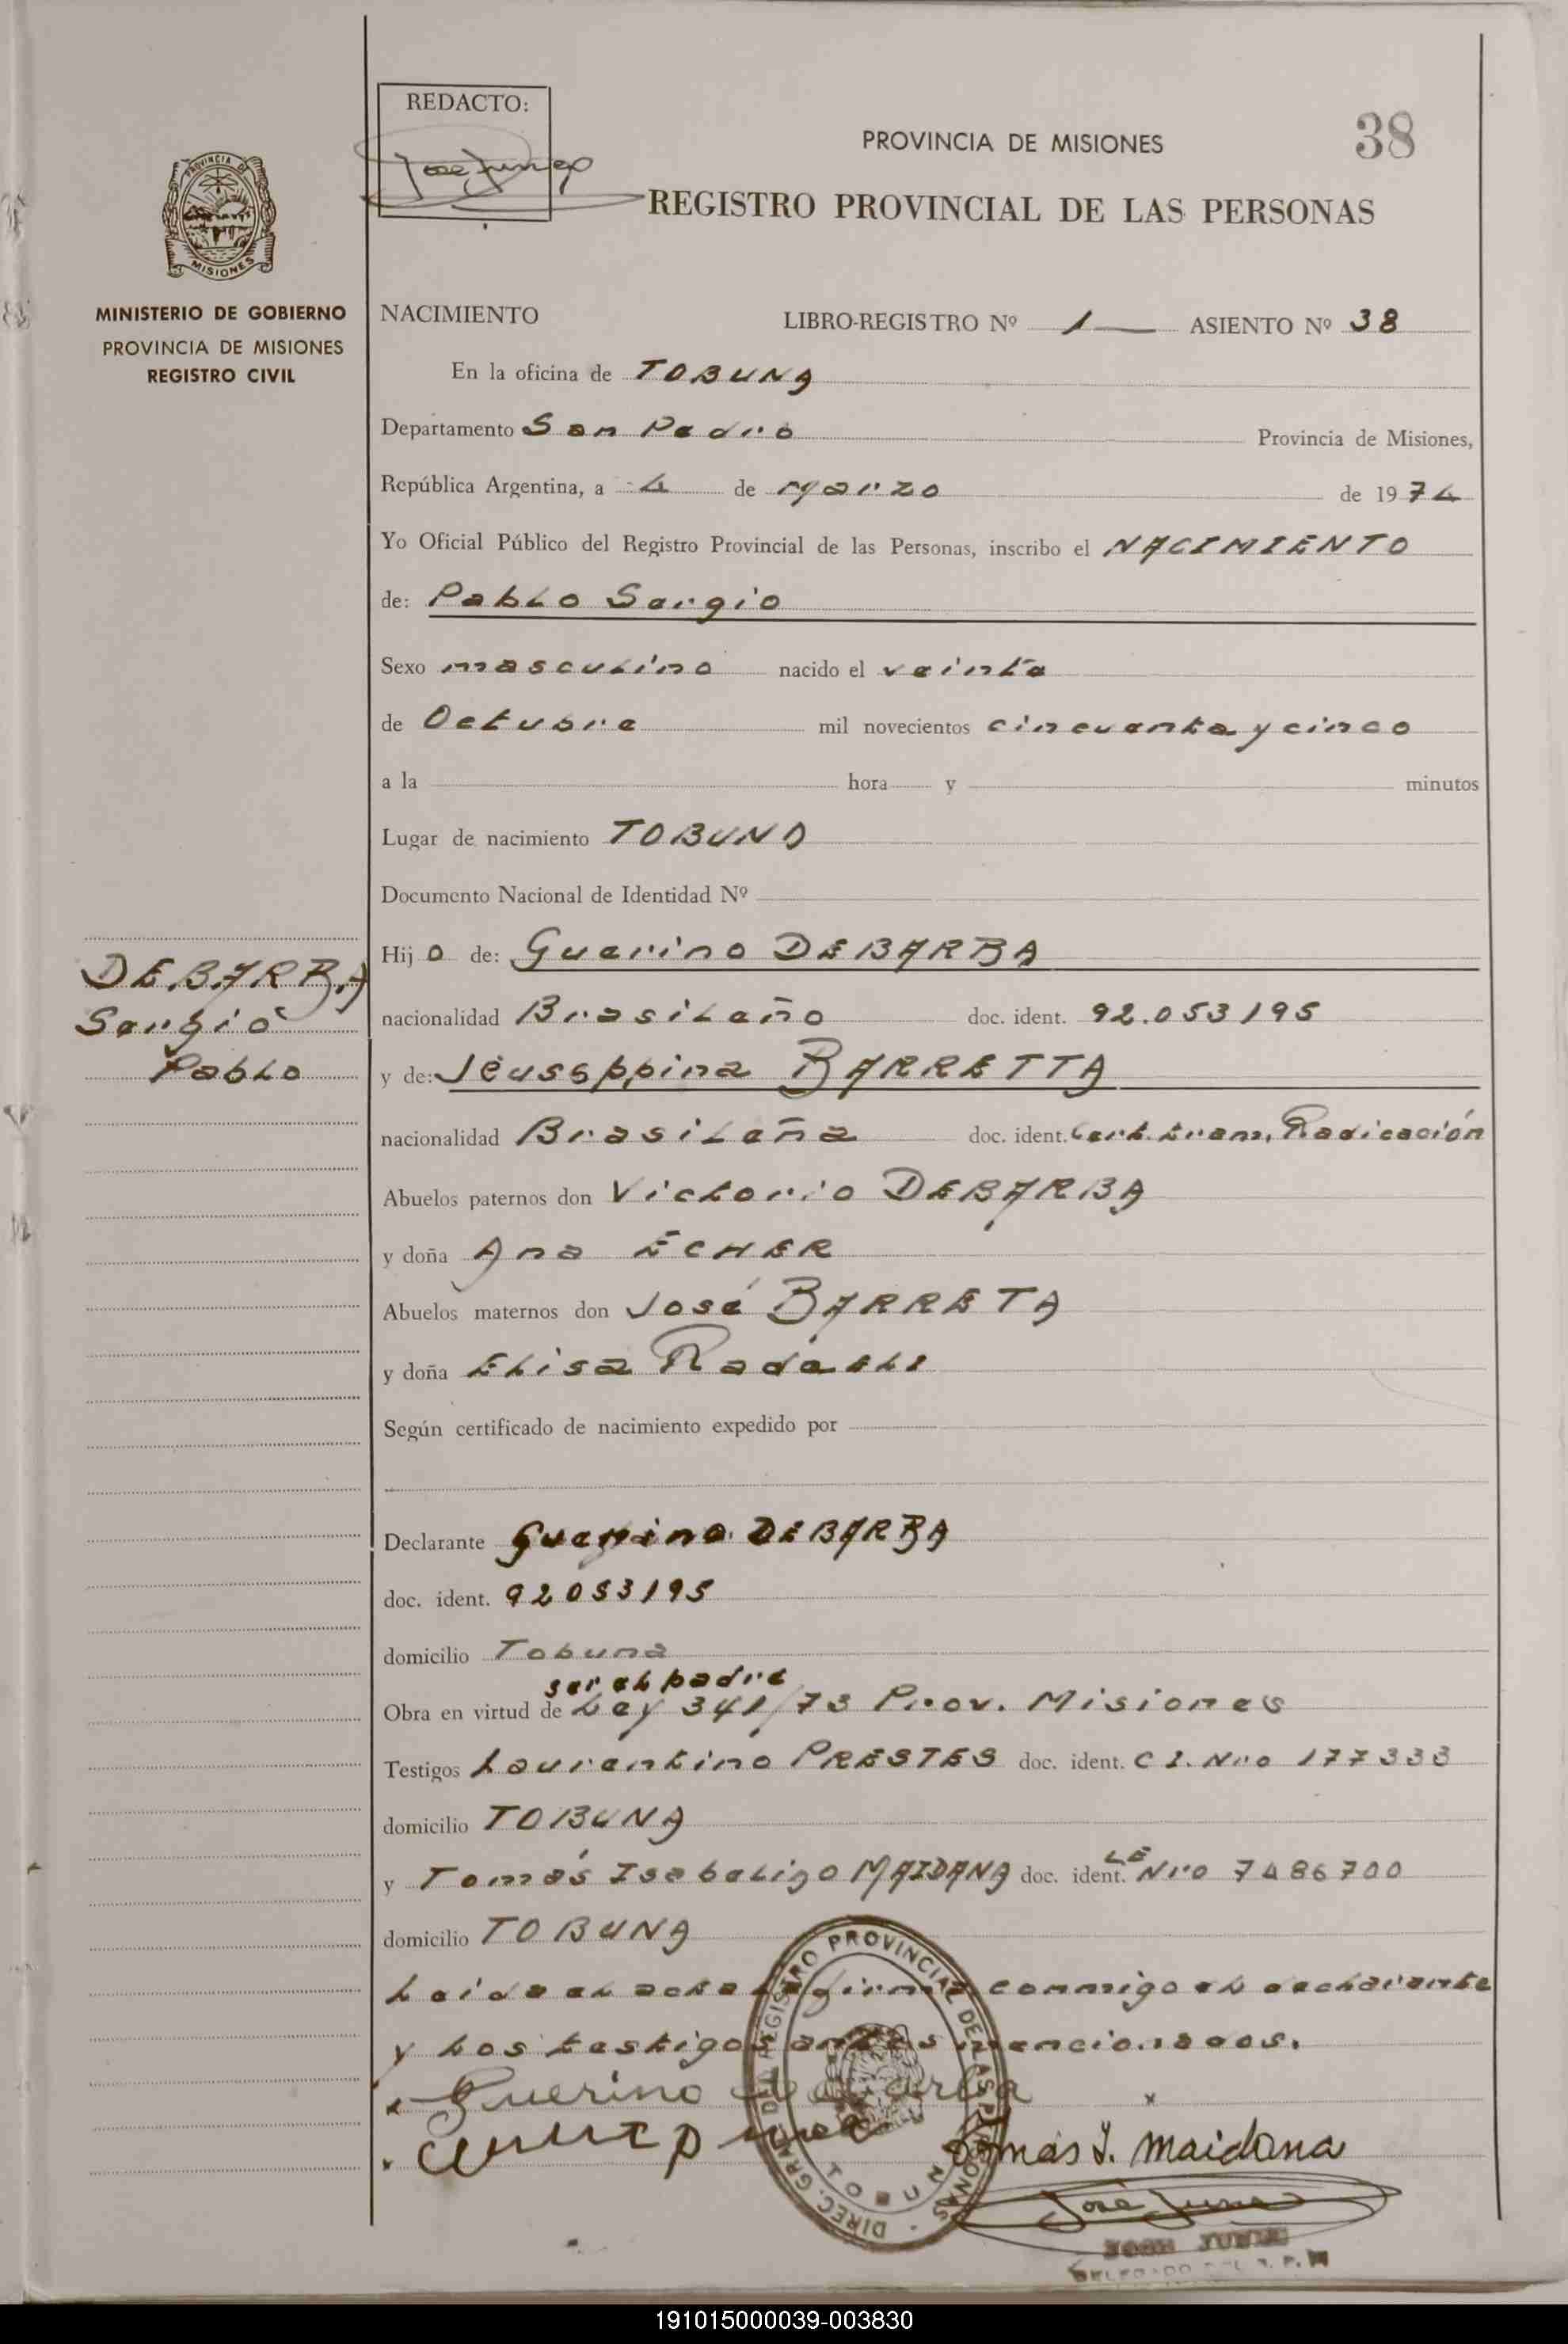 REDACTO:
38
PROVINCIA DE MISIONES
REGISTRO PROVINCIAL DE LAS PERSONAS
PROVINCIA DE
MISIONES
MINISTERIO DE GOBIERNO
PROVINCIA DE MISIONES
REGISTRO CIVIL
NACIMIENTO LIBRO-REGISTRO Nº 1 ASIENTO Nº 38
En la oficina de TOBUNA
Departamento San Pedro Provincia de Misiones,
República Argentina, a 4 de marzo de 1974
Yo Oficial Público del Registro Provincial de las Personas, inscribo el NACIMIENTO
de: Pablo Sergio
Sexo masculino nacido el veinte
de Octubre mil novecientos cincuenta y cinco
a la hora y minutos
Lugar de nacimiento TOBUNO
Documento Nacional de Identidad Nº
Hijo de: Guerino DEBARBA
DEBARBA
Sergio
Pablo
nacionalidad Brasileño doc. ident. 92.053195
y de: Jeuseppina BARRETTA
nacionalidad Brasileña doc. ident. Cert. tram. Radicación
Abuelos paternos don Victorio DEBARBA
y doña Ana ECHER
Abuelos maternos don José BARRETA
y doña Elisa
Según certificado de nacimiento expedido por
Declarante Guerino DEBARBA
doc. ident. 92053195
domicilio Tobuna
ser el padre
Obra en virtud de Ley 341/73 Prov. Misiones
Testigos Laurentino PRESTES doc. ident. C I. Nro 177333
domicilio TOBUNA
y Tomás MAIDANA doc. ident. LE Nro 7486700
domicilio TOBUNA
Leida el acta firma conmigo el declarante
y los testigos antes mencionados.
Guerino Debarba
Tomás I. Maidana
DIREC. GRAL. DEL REGISTRO PROVINCIAL DE LAS PERSONAS
TOBUNA
191015000039-003830